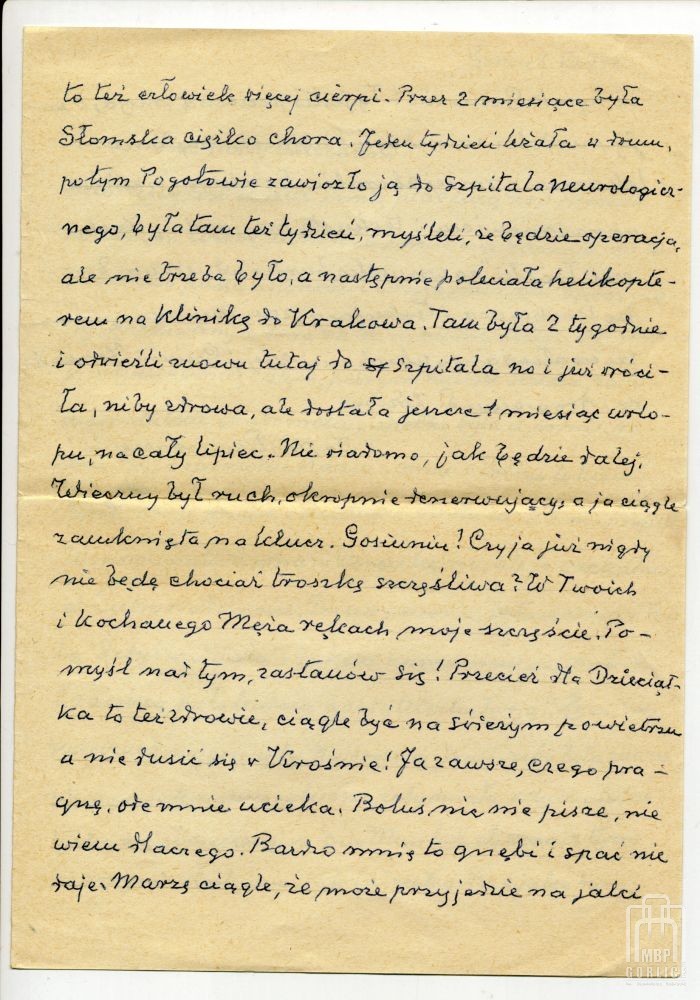 to też człowiek więcej cierpi. Przez 2 miesiące była
Słomska ciężko chora. Jeden tydzień leżała w domu,
potym Pogotowie zawiozło ją do Szpitala neurologicz-
nego, była tam też tydzień, myśleli, że będzie operacja,
ale nie trzeba było, a następnie poleciała helikopte-
rem na Klinikę do Krakowa. Tam była 2 tygodnie
i odwieźli znowu tutaj do Szpitala no i już wróci-
ła, niby zdrowa, ale dostała jeszcze 1 miesiąc urlo-
pu, na cały lipiec. Nie wiadomo, jak będzie dalej.
Wieczny był ruch, okropnie denerwujący, a ja ciągle
zamknięta na klucz. Gosiuniu! Czy ja już nigdy
nie będę chociaż troszkę szczęśliwa? W Twoich
i Kochanego Męża rękach moje szczęście. Po-
myśl nad tym, zastanów się! Przecież dla Dzieciąt-
ka to też zdrowie, ciągle być na świeżym powietrzu
a nie dusić się w Krośnie! Ja zawsze, czego pra-
gnę, ode mnie ucieka. Boluś nie pisze, nie
wiem dlaczego. Bardzo mnie to gnębi i spać nie
daje. Marzę ciągle, że może przyjedzie na jakiś
MBP
GORLICE